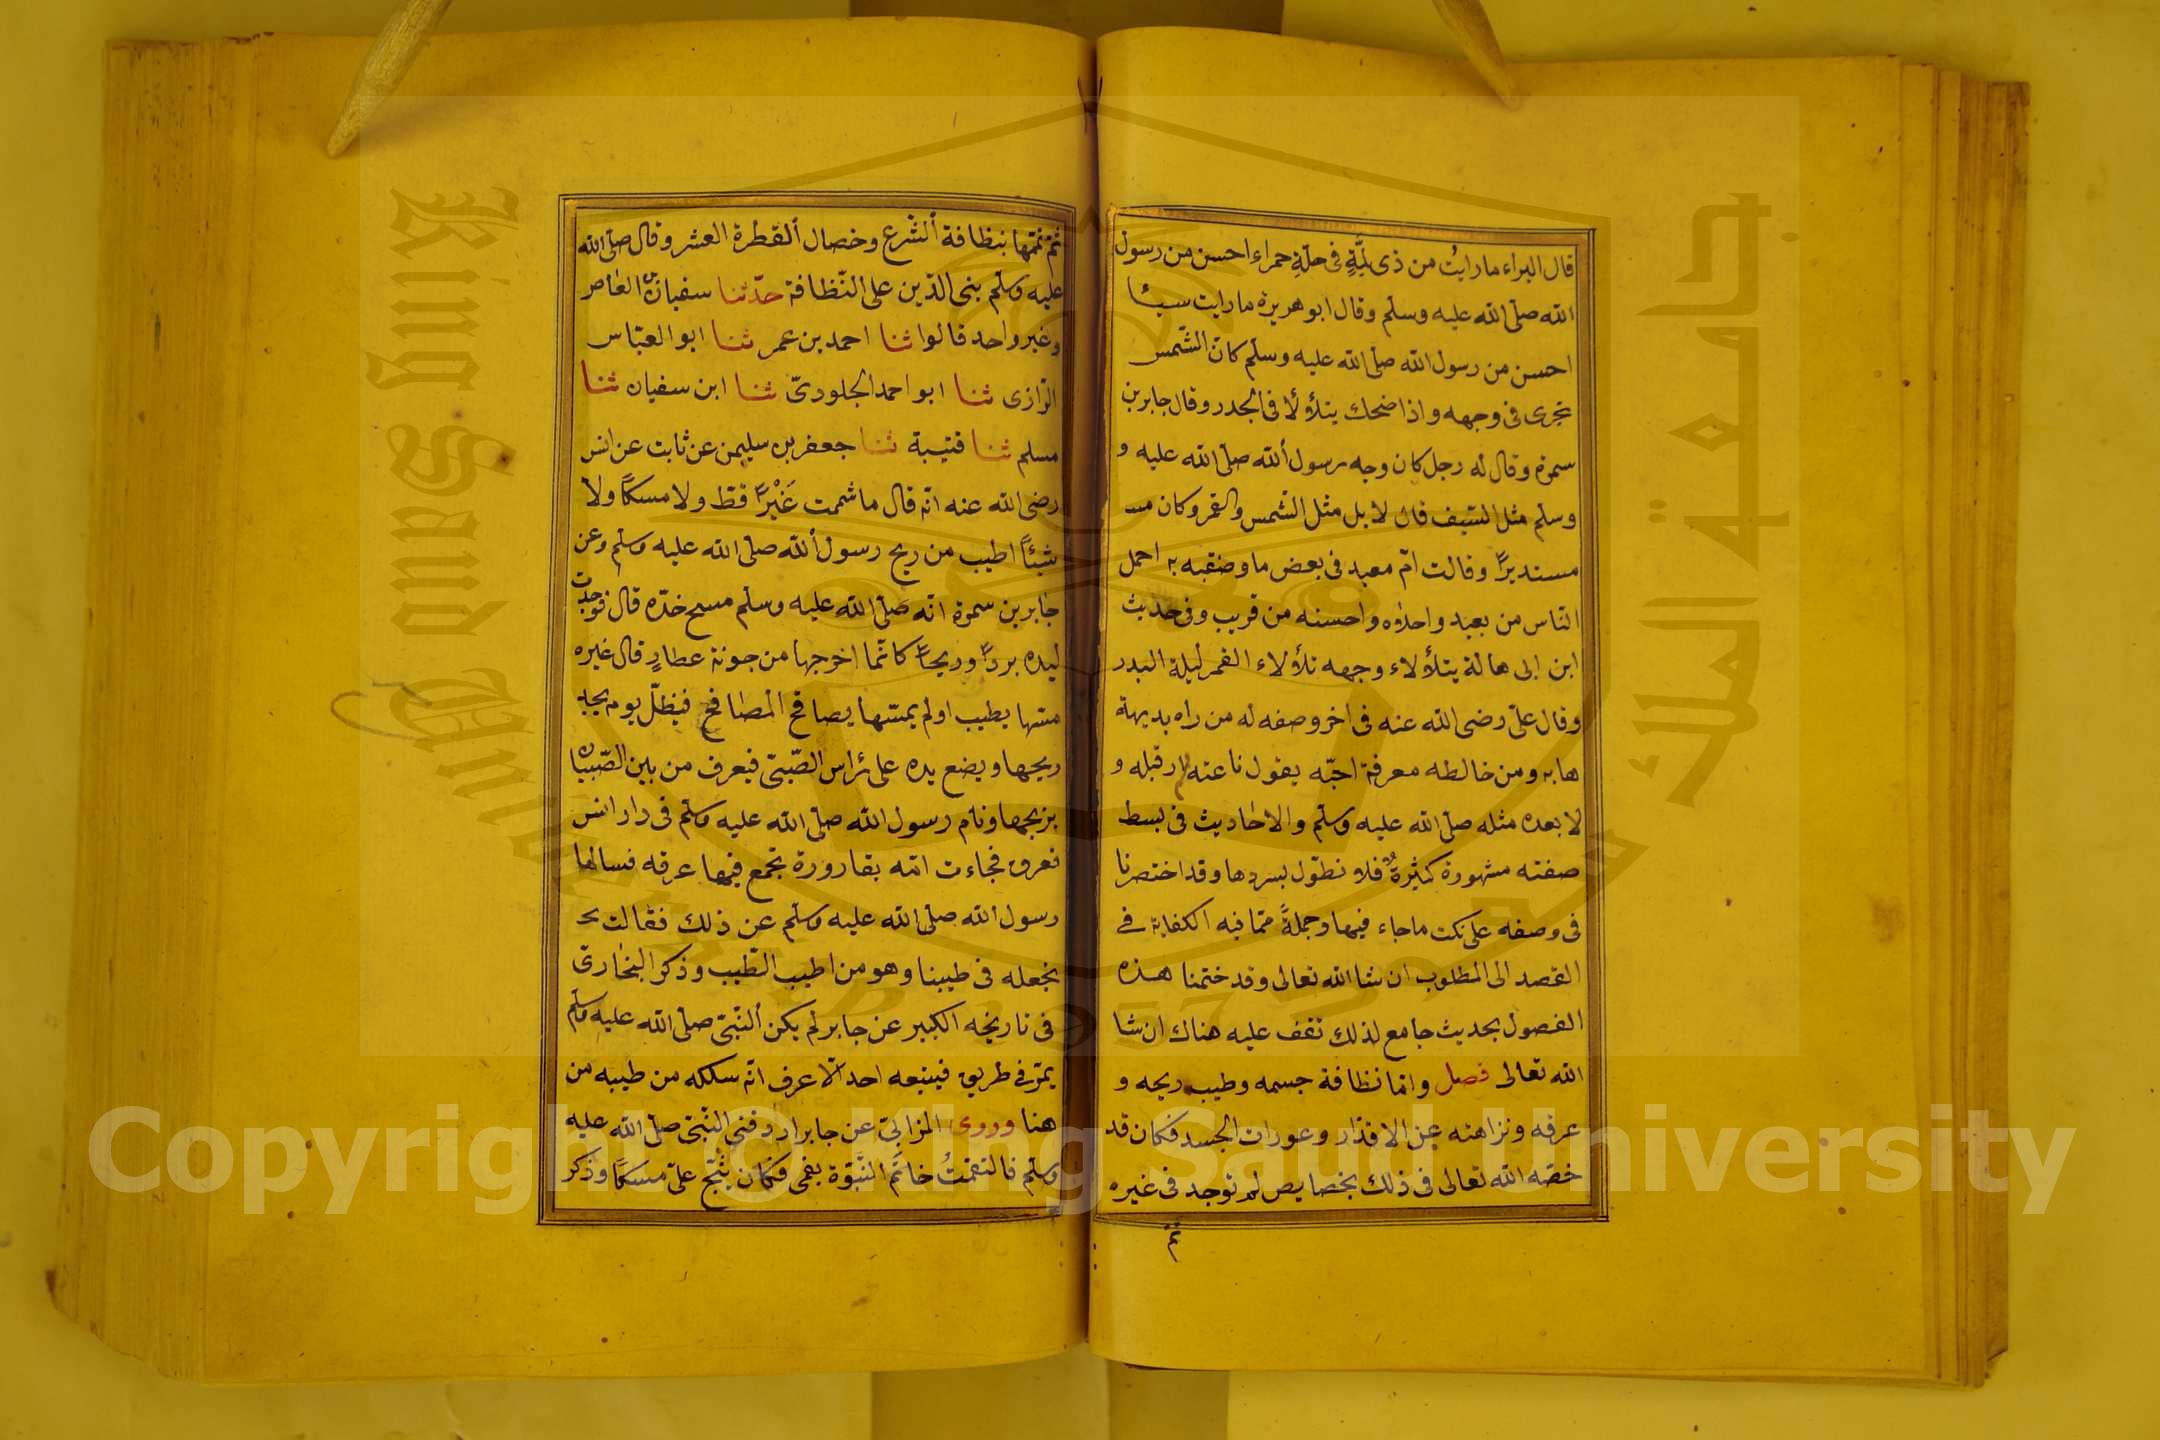 قال البراء ما رايت من ذى لمّةٍ فى حلّةٍ حمراء احسن من رسول
الله صلّى الله عليه وسلّم وقال ابو هريرة ما رايت سيئا
احسن من رسول الله صلّى الله عليه وسلّم كانّ الشّمس
تجرى فى وجهه واذا ضحك يتلأؤلأ فى الجدر وقال جابر بن
سمرة وقال له رجل كان وجه رسول ألله صلّى الله عليه و
وسلّم مثل السّيف قال لا بل مثل الشّمس والقمر وكان مسـ
مستديراً وقالت امّ معبد فى بعض ما وصفته به اجمل
النّاس من بعيد واحلاه واحسنه من قريب وفى حديث
ابن ابى هالة يتلأؤلاء وجهه تلأؤلاء القمر ليلة البدر
وقال علىّ رضى الله عنه فى اخر وصفه له من راه بديهة
هابه ومن خالطه معرفة احبّه يقول ناعته لم ار قبله و
لا بعده مثله صلّى الله عليه وسلّم والاحاديث فى بسط
صفته مشهورة كثيرةٌ فلا نطوّل بسردها وقد اختصرنا
فى وصفه على نكت ما جاء فيها وجملةً ممّا فيه الكفاية فى
القصد الى المطلوب ان شا الله تعالى وقد ختمنا هذه
الفصول بحديث جامع لذلك تقف عليه هناك ان شا
الله تعالى فصل وامّا نظافة جسمه وطيب ريحه و
عرقه ونزاهته عن الاقذار وعورات الجسد فكان قد
خصّه الله تعالى فى ذلك بخصايص لم توجد فى غيره
ثمّ
ثمّ تممّها بنظافة ألشّرع وخصال ألفطرة العشر وقال صلّى الله
عليه وسلّم بنى الدّين على النّظافة حدّثنا سفيان بن العاصر
وغير واحد قالوا ثنا احمد بن عمر ثنا ابو العبّاس
الرّازى ثنا ابو احمد الجلودىّ ثنا ابن سفيان ثنا
مسلم ثنا قتيبة ثنا جعفر بن سليمن عن ثابت عن انس
رضى الله عنه انّه قال ما شممت عَنْبراً قطّ ولا مسكاً ولا
شيئاً اطيب من ريح رسول ألله صلّى الله عليه وسلّم وعن
جابر بن سمرة انّه صلّى الله عليه وسلّم مسح خدّه قال فوجدت
ليده برداً وريحاً كانّما اخرجها من جونة عطارٍ قال غيره
مسّها بطيب او لم يمسّها يصافح المصافح فيظلّ يومه يجد
ريحها ويضع يده على رأس الصّبىّ فيعرف من بين الصّبيان
بريحها ونام رسول الله صلّى الله عليه وسلّم فى دار انس
فعرق فجاءت امّه بقارورة تجمع فيها عرقه فسالها
رسول الله صلّى الله عليه وسلّم عن ذلك فقالت نجـ
نجعله فى طيبنا وهو من اطيب الطّيب وذكر البخارىّ
فى تاريخه الكبير عن جابر لم يكن ألنّبىّ صلّى الله عليه وسلّم
يمرّ فى طريق فيتبعه احد الّا عرف انّه سلكه من طيبه من
هنا وروى المزابىّ عن جابر اردفنى النّبىّ صلّى الله عليه
وسلّم فالتقمتُ خاتَم النّبوّة بفمى فكان يثجّ علىّ مسكاً وذكر
King Saud University
جامعة الملك
1957
Copyright © King Saud University